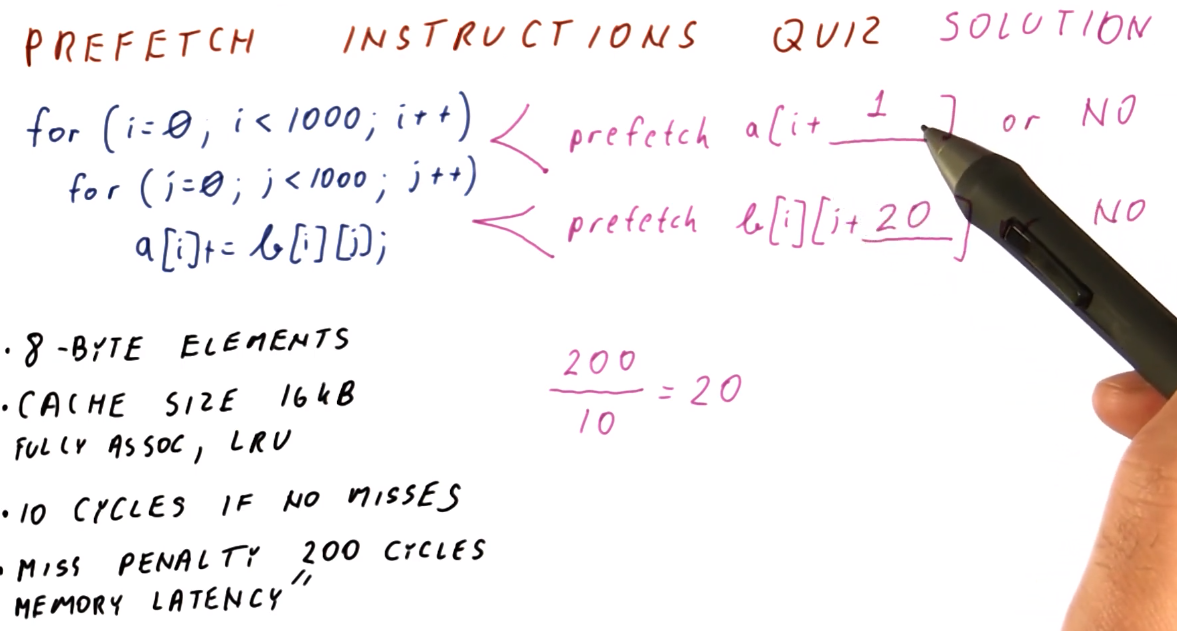 PREFETCH INSTRUCTIONS QUIZ SOLUTION
for (i=0; i<1000; i++)
prefetch a[i+ 1 ] or NO
for (j=0; j<1000; j++)
a[i]+= b[i][j];
prefetch b[i][j+ 20 ] NO
• 8-BYTE ELEMENTS
• CACHE SIZE 16kB
FULLY ASSOC, LRU
• 10 CYCLES IF NO MISSES
• MISS PENALTY 200 CYCLES
MEMORY LATENCY "
200
10
= 20